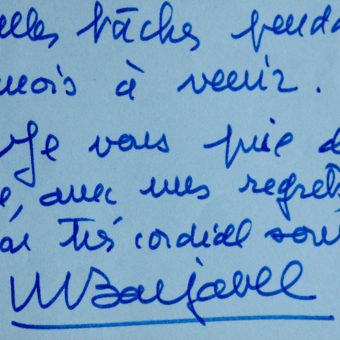 elles tâches penda
mois à venir.
Je vous prie d
e, avec mes regrets
très cordial sou
Barjavel